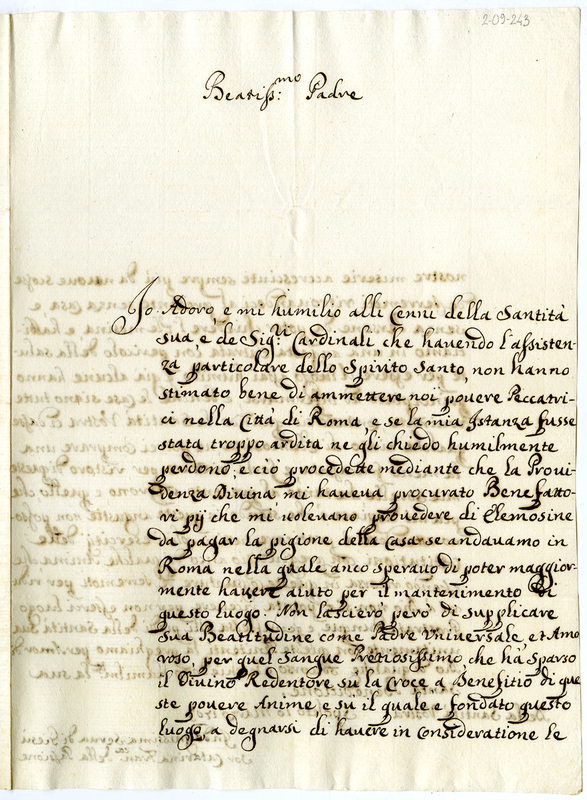 2-09-243
Beatiss:mo Padre
Io Adoro, e mi humilio alli Cenni della Santità
sua, e de Sig:ri Cardinali che havendo l'assisten-
za particolare dello Spirito Santo, non hanno
stimato bene di ammettere noi povere Peccatri-
ci nella Città di Roma, e se la mia Istanza fusse
stata troppo ardita ne gli chiedo humilmente
perdono, e ciò procedette mediante che la Provi-
denza Divina mi haveva procurato Benefatto-
ri pij che mi volevano provedere di Elemosine
da pagar la pigione della Casa se andavamo in
Roma nella quale anco speravo di poter maggior-
mente havere aiuto per il mantenimento di
questo luogo. Non lascierò però di supplicare
sua Beatitudine come Padre Universale, et Amo
roso, per quel Sangue Pretiosissimo, che hà sparso
il Divino Redentore sù la Croce à Benefitio di que
ste povere Anime, e sù il quale è fondato questo
luogo, a degnarsi di havere in Consideratione le